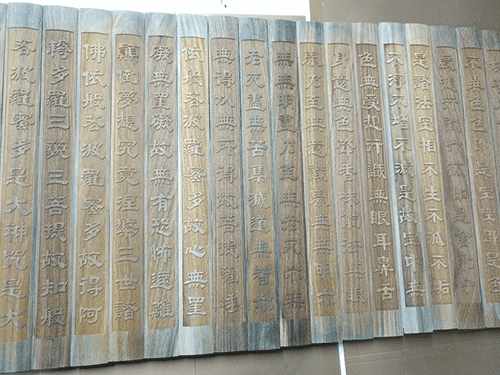 不異色
是諸法空相不生不滅不垢
不淨不增不減是故空中無
色無受想行識無眼耳鼻舌
身意無色聲香味觸法無眼
界乃至無意識界無無明亦
無無明盡乃至無老死亦無
老死盡無苦集滅道無智亦
無得以無所得故菩提薩埵
依般若波羅蜜多故心無罣
礙無罣礙故無有恐怖遠離
顛倒夢想究竟涅槃三世諸
佛依般若波羅蜜多故得阿
耨多羅三藐三菩提故知般
若波羅蜜多是大神咒是大